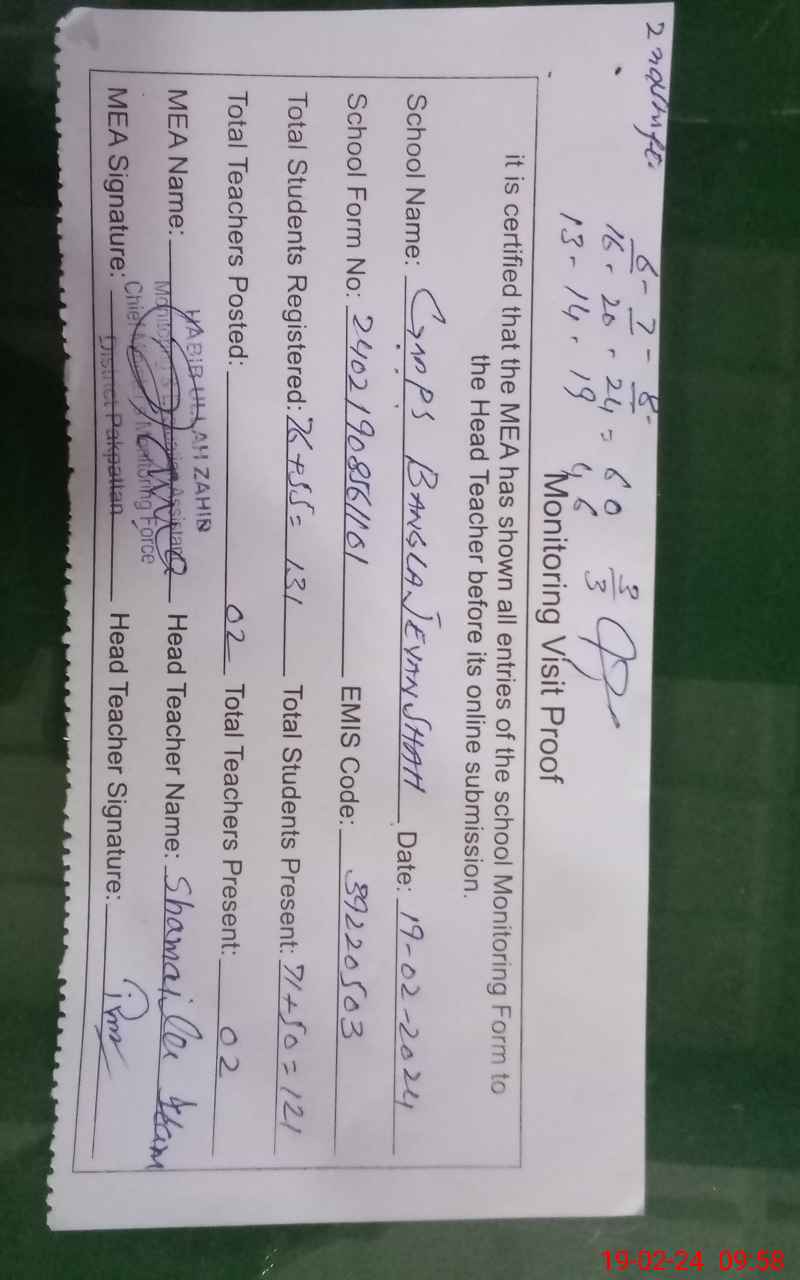 6 - 7 - 8 -
16 - 20 - 24 = 60 3/3
13 - 14 - 19 46
Monitoring Visit Proof
it is certified that the MEA has shown all entries of the school Monitoring Form to
the Head Teacher before its online submission.
School Name: GMMPS BANGLA JEVAN SHAH Date: 19-02-2024
School Form No: 24021908561101 EMIS Code: 39220503
Total Students Registered: 76+55= 131 Total Students Present: 71+50=121
Total Teachers Posted: 02 Total Teachers Present: 02
HABIB ULLAH ZAHID
MEA Name: Head Teacher Name: Shamaila
Monitoring & Assistant
Chief Monitoring Force
MEA Signature: District Pakpattan Head Teacher Signature:
19-02-24 09:58